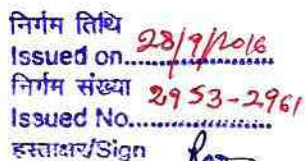 निर्गम तिथि
Issued on 28/9/2016
निर्गम संख्या
Issued No. 2953-2961
हस्ताक्षर/Sign